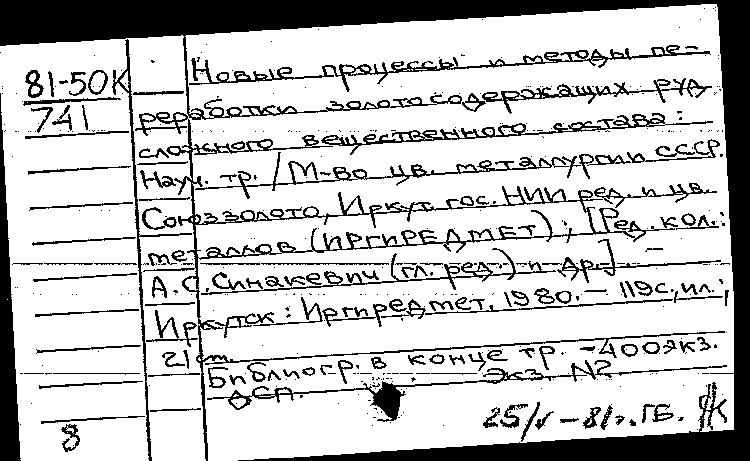 81-50К
741
Новые процессы и методы пе-
реработки золотосодержащих руд
сложного вещественного состава:
Науч. тр. / М-во цв. металлургии СССР.
Союззолото, Иркут. гос. НИИ ред. и цв.
металлов (ИРГИРЕДМЕТ); [Ред. кол.:
А.С. Синакевич (гл. ред.) и др.]. —
Иркутск: Иргиредмет, 1980. — 119с., ил.;
21 cm.
Библиогр. в конце тр. - 400 экз.
ДСП. Экз. N2.
25/V - 81г. ГБ.
8